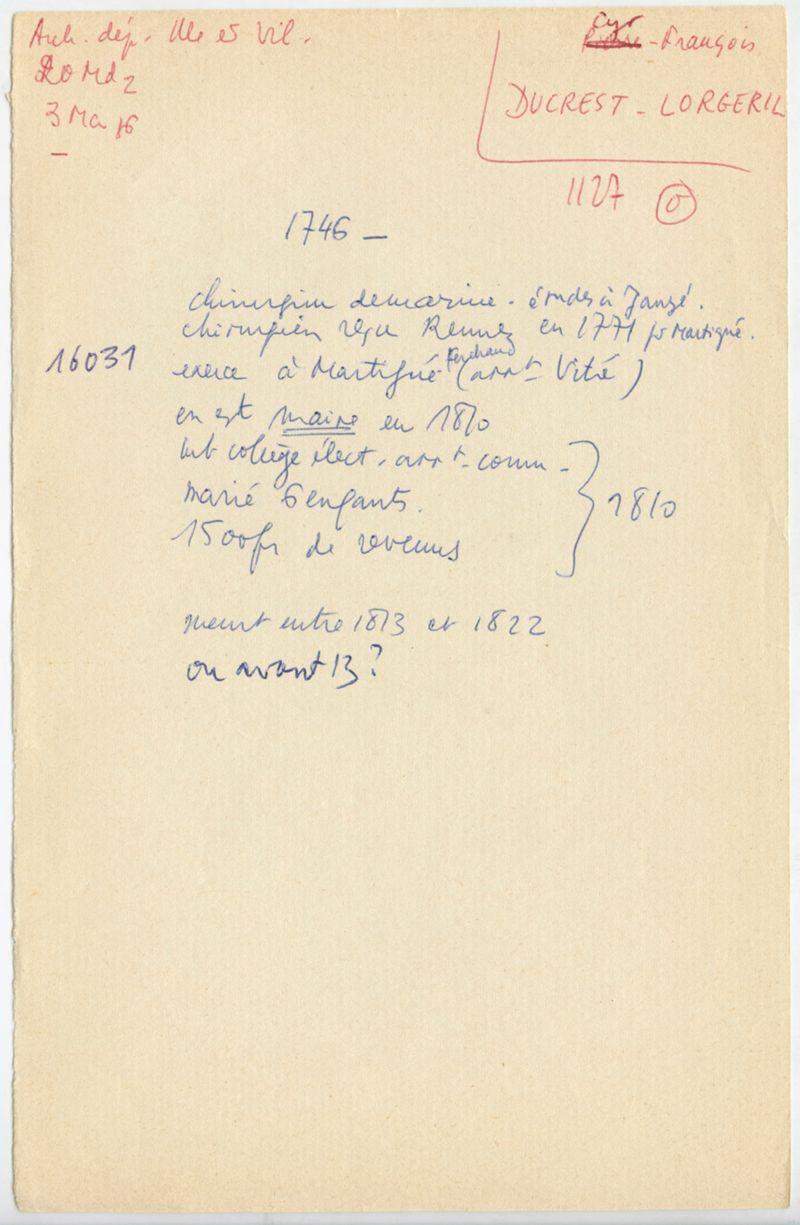 Arch. dép. Ille et Vil.
20 Md 2
3 Ma 16
Cyr
-François
DUCREST - LORGERIL
1127 0
1746 _
chirurgien de marine - études à Janzé.
chirurgien reçu Rennes en 1771 pr Martigné.
16031
exerce à Martigné Ferchaud (arrt Vitré)
en est maire en 1810
mb collège élect. arrt - comm -
marié 6 enfants.
1500 fr de revenus
1810
meurt entre 1813 et 1822
ou avant 13 ?